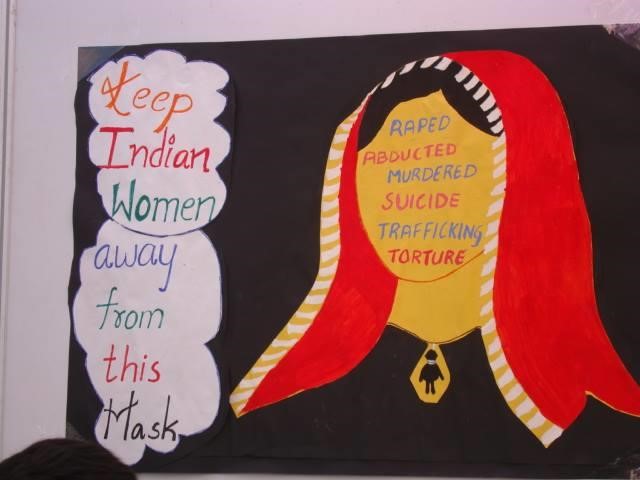 Keep
Indian
Women
away
from
this
Mask
RAPED
ABDUCTED
MURDERED
SUICIDE
TRAFFICKING
TORTURE